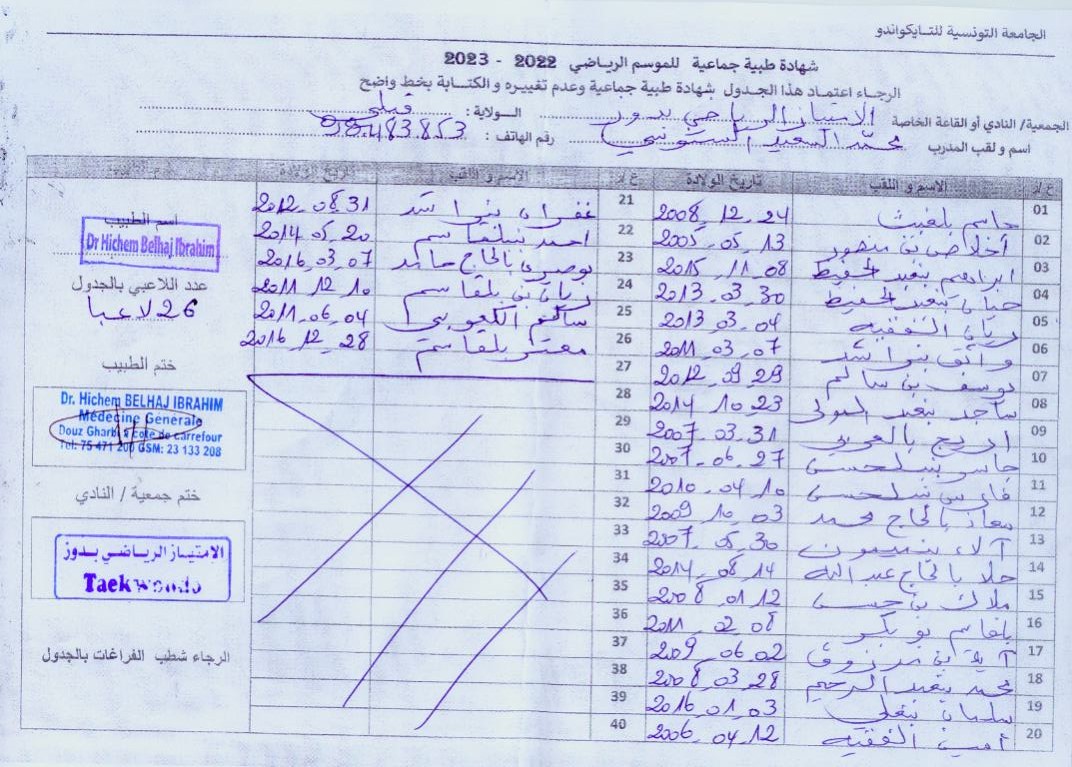 الجامعة التونسية للتايكواندو
شهادة طبية جماعية للموسم الرياضي 2022 - 2023
الرجاء اعتماد هذا الجدول شهادة طبية جماعية وعدم تغييره و الكتابة بخط واضح
الجمعية/ النادي أو القاعة الخاصة الامتياز الرياضي بدوز الولاية : قبلي
اسم و لقب المدرب محمد السعيد رقم الهاتف : 98483853
ع/ر الاسم و اللقب تاريخ الولادة
01 جاسم بلغيث 2008_12_24
02 أخلاص بن منصور 2005_05_13
03 ابراهيم بنعبد الحفيظ 2015_11_08
04 بنعبد الحفيظ 2013_03_30
05 ريان الفقيه 2013_03_04
06 وائق بنراشد 2011_03_07
07 يوسف بن سالم 2012_09_29
08 ساجد بنعبد المولى 2014_10_23
09 اريج بالعربي 2007_03_31
10 2007_06_27
11 فارس 2010_04_10
12 معاذ بالحاج محمد 2009_10_03
13 آلاء بنميمون 2007_05_30
14 حلا بالحاج عبد الله 2014_08_14
15 ملاك بن حسن 2008_01_12
16 بلقاسم بوبكر 2011_02_08
17 آية بن مرزوق 2009_06_02
18 محمد بنعبد الرحيم 2008_03_28
19 سليمان بنعلي 2016_01_03
20 أمين الفقيه 2006_04_12
ع/ر الاسم و اللقب تاريخ الولادة
21 غفران بنراشد 2012_08_31
22 احمد بلقاسم 2014_05_20
23 بالحاج حامد 2016_03_07
24 ريان بن بلقاسم 2011_12_10
25 سالم الكعوبي 2011_06_04
26 معتز بلقاسم 2016_12_28
27
28
29
30
31
32
33
34
35
36
37
38
39
40
اسم الطبيب
Dr Hichem Belhaj Ibrahim
عدد اللاعبي بالجدول
26 لاعبا
ختم الطبيب
Dr. Hichem BELHAJ IBRAHIM
Médecine Générale
Douz Gharbi à coté de carrefour
Tel: 75 471 200 GSM: 23 133 208
ختم جمعية / النادي
الإمتياز الرياضي بدوز
Taekwondo
الرجاء شطب الفراغات بالجدول